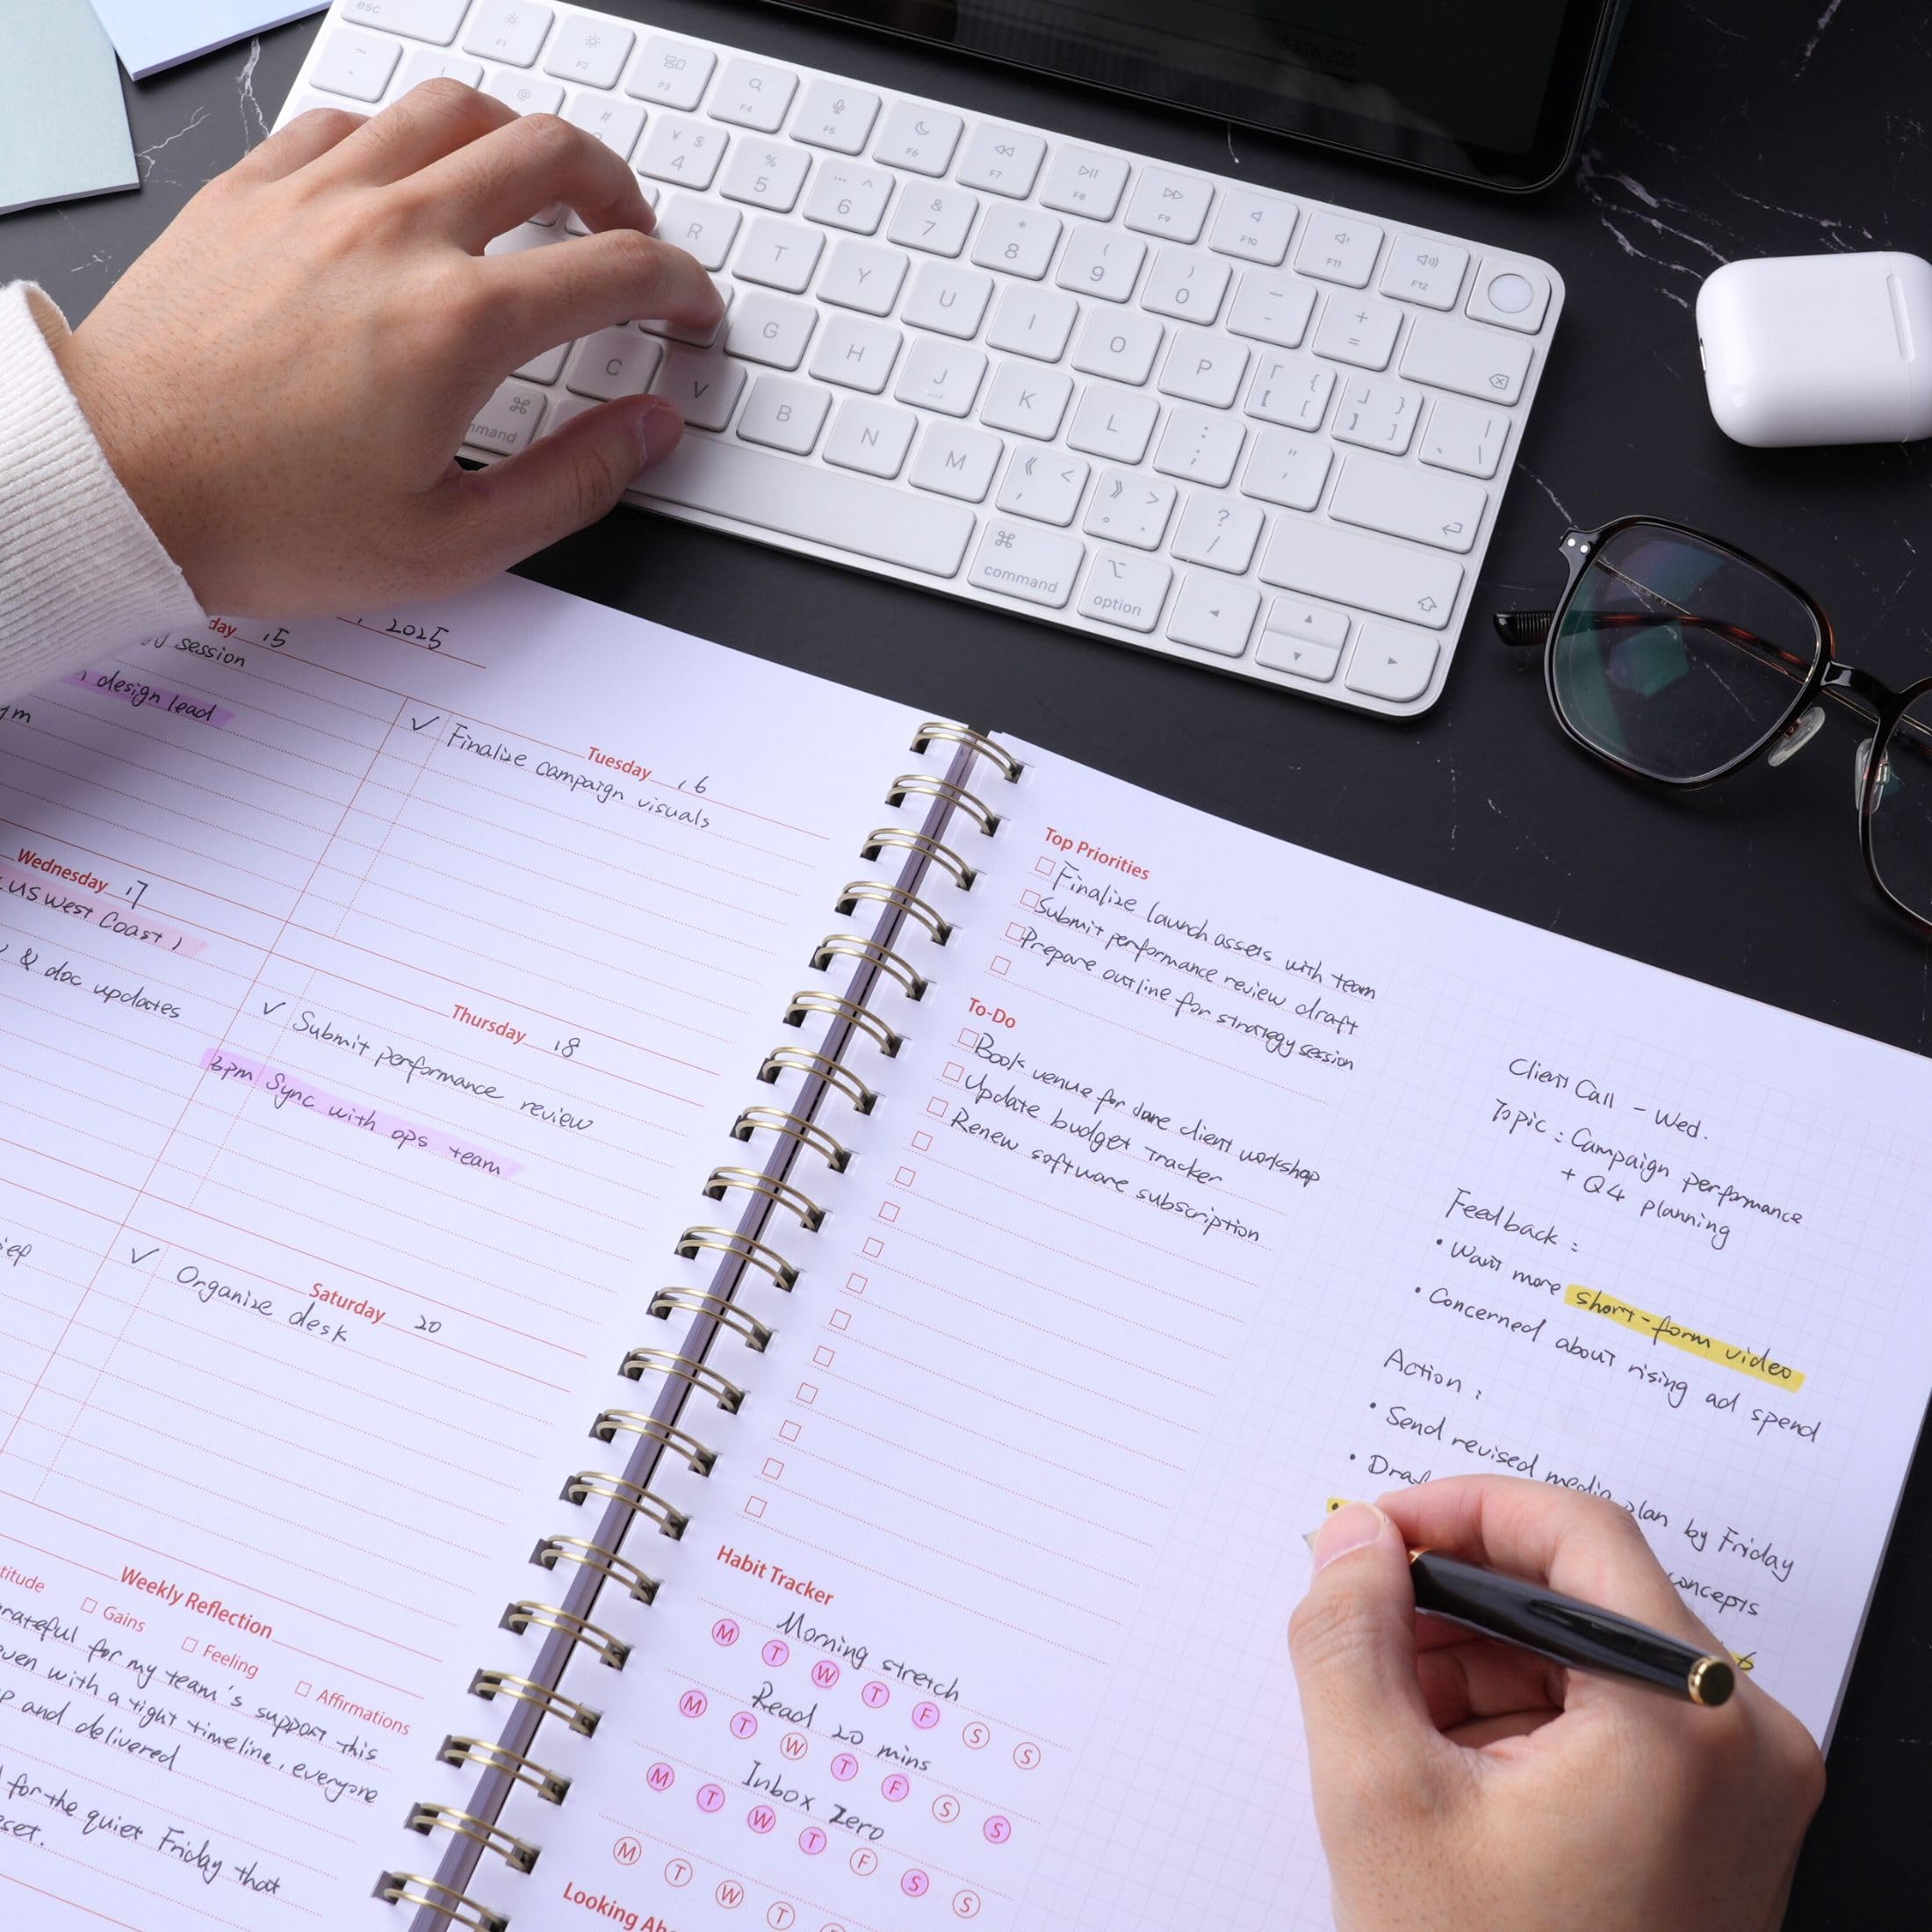 esc
F1
F2
F3
F4
F5
F6
F7
F8
F9
F10
F11
F12
~
!
@
#
¥ $
4
%
5
… ^
6
&
7
*
8
(
9
)
0
—
-
+
=
R
T
Y
U
I
O
P
「 {
【 [
」 }
】 ]
|
、 \
G
H
J
K
L
:
;
"
'
C
V
B
N
M
《 <
,
》 >
。 .
?
/
⌘
⌘
command
⌥
option
2025
day 15
session
design lead
Tuesday 16
✓ Finalize campaign visuals
Wednesday 17
US West Coast)
& doc updates
Thursday 18
✓ Submit performance review
3pm Sync with ops team
Saturday 20
✓ Organize desk
Weekly Reflection
Gains
Feeling
Affirmations
for my team's support this
with a tight timeline, everyone
and delivered
for the quiet Friday that
Top Priorities
Finalize launch assets with team
Submit performance review draft
Prepare outline for strategy session
To-Do
Book venue for client workshop
Update budget tracker
Renew software subscription
Habit Tracker
Morning stretch
M T W T F S S
Read 20 mins
M T W T F S S
Inbox Zero
M T W T F S S
M T W T
Looking
Client Call - Wed.
Topic : Campaign performance
+ Q4 planning
Feedback :
• Want more short-form video
• Concerned about rising ad spend
Action :
• Send revised media plan by Friday
• concepts